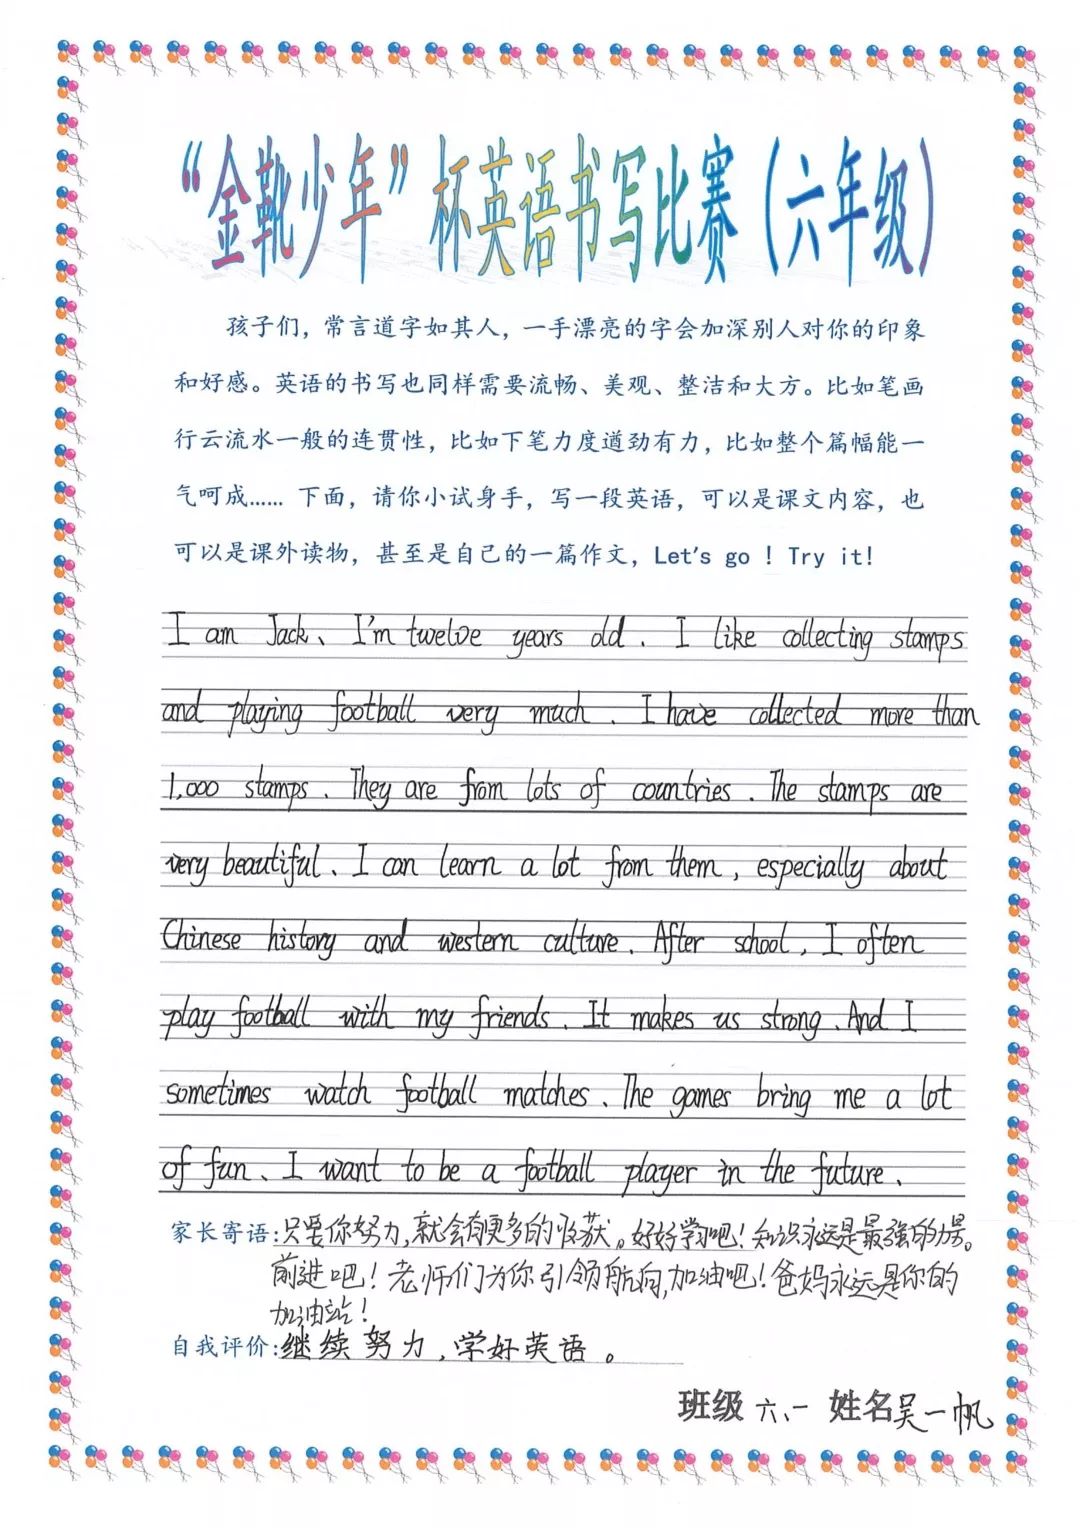 “金靴少年”杯英语书写比赛（六年级）
孩子们，常言道字如其人，一手漂亮的字会加深别人对你的印象
和好感。英语的书写也同样需要流畅、美观、整洁和大方。比如笔画
行云流水一般的连贯性，比如下笔力度道劲有力，比如整个篇幅能一
气呵成…… 下面，请你小试身手，写一段英语，可以是课文内容，也
可以是课外读物，甚至是自己的一篇作文，Let's go ! Try it!
I am Jack、I'm twelve years old . I like collecting stamps
and playing football very much . I have collected more than
1,000 stamps . They are from lots of countries . The stamps are
very beautiful . I can learn a lot from them , especially about
Chinese history and western culture . After school , I often
play football with my friends . It makes us strong . And I
sometimes watch football matches . The games bring me a lot
of fun . I want to be a football player in the future .
家长寄语:只要你努力,就会有更多的收获。好好学习吧！知识永远是最强的力量。
前进吧！老师们为你引领航向,加油吧！爸妈永远是你的
加油站！
自我评价:继续努力,学好英语。
班级 六、一 姓名吴一帆